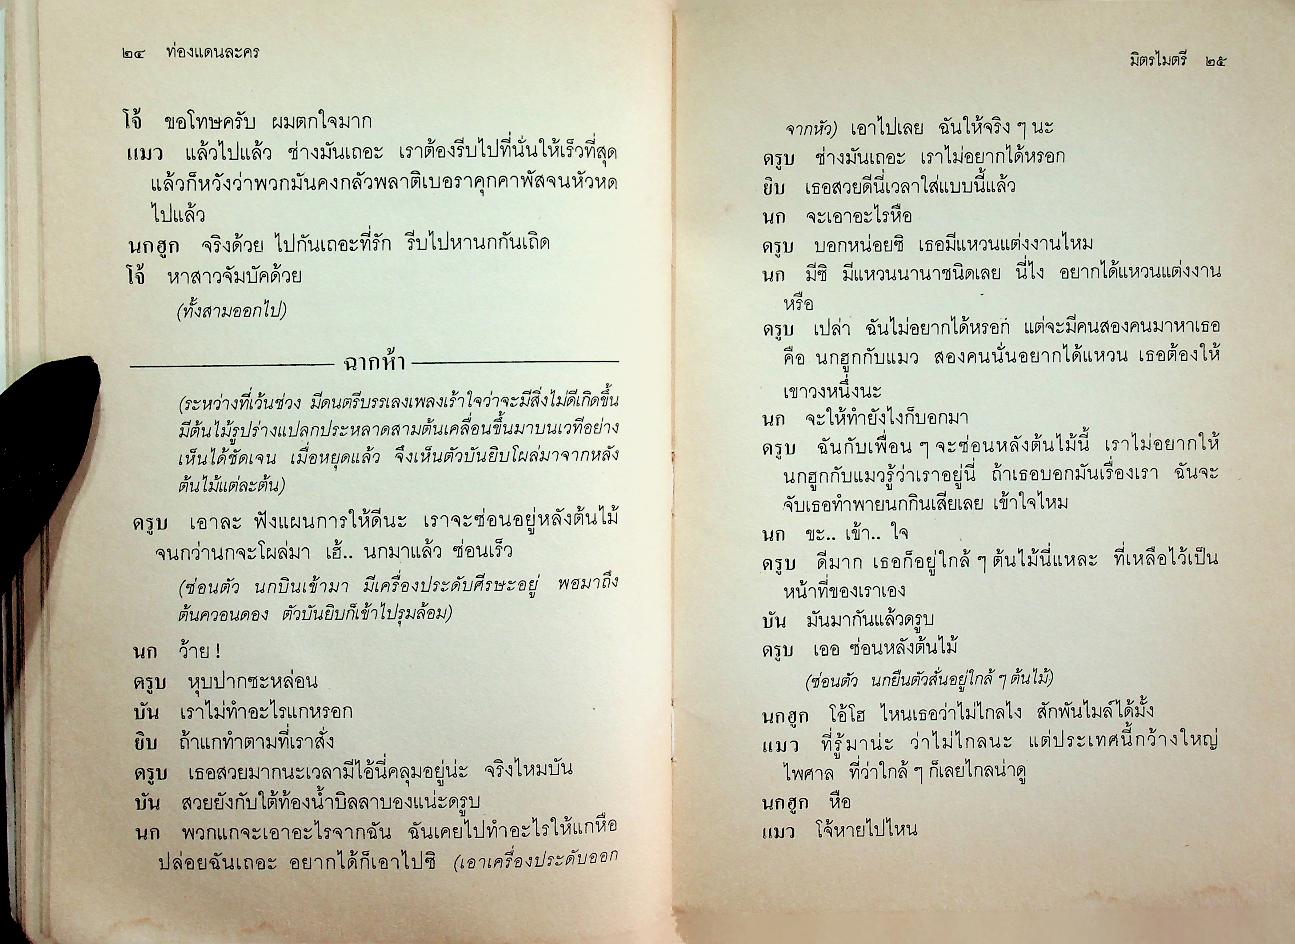 ๒๔ ท่องแดนละคร
โจ้ ขอโทษครับ ผมตกใจมาก
แมว แล้วไปแล้ว ช่างมันเถอะ เราต้องรีบไปที่นั่นให้เร็วที่สุด
แล้วก็หวังว่าพวกมันคงกลัวพลาติเบอราคุกคาพัสจนหัวหด
ไปแล้ว
นกฮูก จริงด้วย ไปกันเถอะที่รัก รีบไปหานกกันเถิด
โจ้ หาสาวจัมบัคด้วย
(ทั้งสามออกไป)
ฉากห้า
(ระหว่างที่เว้นช่วง มีดนตรีบรรเลงเพลงเร้าใจว่าจะมีสิ่งไม่ดีเกิดขึ้น
มีต้นไม้รูปร่างแปลกประหลาดสามต้นเคลื่อนขึ้นมาบนเวทีอย่าง
เห็นได้ชัดเจน เมื่อหยุดแล้ว จึงเห็นตัวบันยิบโผล่มาจากหลัง
ต้นไม้แต่ละต้น)
ดรูบ เอาละ ฟังแผนการให้ดีนะ เราจะซ่อนอยู่หลังต้นไม้
จนกว่านกจะโผล่มา เฮ้.. นกมาแล้ว ซ่อนเร็ว
(ซ่อนตัว นกบินเข้ามา มีเครื่องประดับศีรษะอยู่ พอมาถึง
ต้นควอนดอง ตัวบันยิบก็เข้าไปรุมล้อม)
นก ว้าย !
ดรูบ หุบปากซะหล่อน
บัน เราไม่ทำอะไรแกหรอก
ยิบ ถ้าแกทำตามที่เราสั่ง
ดรูบ เธอสวยมากนะเวลามีไอ้นี่คลุมอยู่น่ะ จริงไหมบัน
บัน สวยยังกับใต้ท้องน้ำบิลลาบองแน่ะดรูบ
นก พวกแกจะเอาอะไรจากฉัน ฉันเคยไปทำอะไรให้แกหือ
ปล่อยฉันเถอะ อยากได้ก็เอาไปซิ (เอาเครื่องประดับออก
มิตรไมตรี ๒๕
จากหัว) เอาไปเลย ฉันให้จริง ๆ นะ
ดรูบ ช่างมันเถอะ เราไม่อยากได้หรอก
ยิบ เธอสวยดีนี่เวลาใส่แบบนี้แล้ว
นก จะเอาอะไรหือ
ดรูบ บอกหน่อยซิ เธอมีแหวนแต่งงานไหม
นก มีซิ มีแหวนนานาชนิดเลย นี่ไง อยากได้แหวนแต่งงาน
หรือ
ดรูบ เปล่า ฉันไม่อยากได้หรอก แต่จะมีคนสองคนมาหาเธอ
คือ นกฮูกกับแมว สองคนนั่นอยากได้แหวน เธอต้องให้
เขาวงหนึ่งนะ
นก จะให้ทำยังไงก็บอกมา
ดรูบ ฉันกับเพื่อน ๆ จะซ่อนหลังต้นไม้นี้ เราไม่อยากให้
นกฮูกกับแมวรู้ว่าเราอยู่นี่ ถ้าเธอบอกมันเรื่องเรา ฉันจะ
จับเธอทำพายนกกินเสียเลย เข้าใจไหม
นก ขะ.. เข้า.. ใจ
ดรูบ ดีมาก เธอก็อยู่ใกล้ ๆ ต้นไม้นี่แหละ ที่เหลือไว้เป็น
หน้าที่ของเราเอง
บัน มันมากันแล้วดรูบ
ดรูบ เออ ซ่อนหลังต้นไม้
(ซ่อนตัว นกยืนตัวสั่นอยู่ใกล้ ๆ ต้นไม้)
นกฮูก โอ้โฮ ไหนเธอว่าไม่ไกลไง สักพันไมล์ได้มั้ง
แมว ที่รู้มาน่ะ ว่าไม่ไกลนะ แต่ประเทศนี้กว้างใหญ่
ไพศาล ที่ว่าใกล้ ๆ ก็เลยไกลน่าดู
นกฮูก หือ
แมว โจ้หายไปไหน